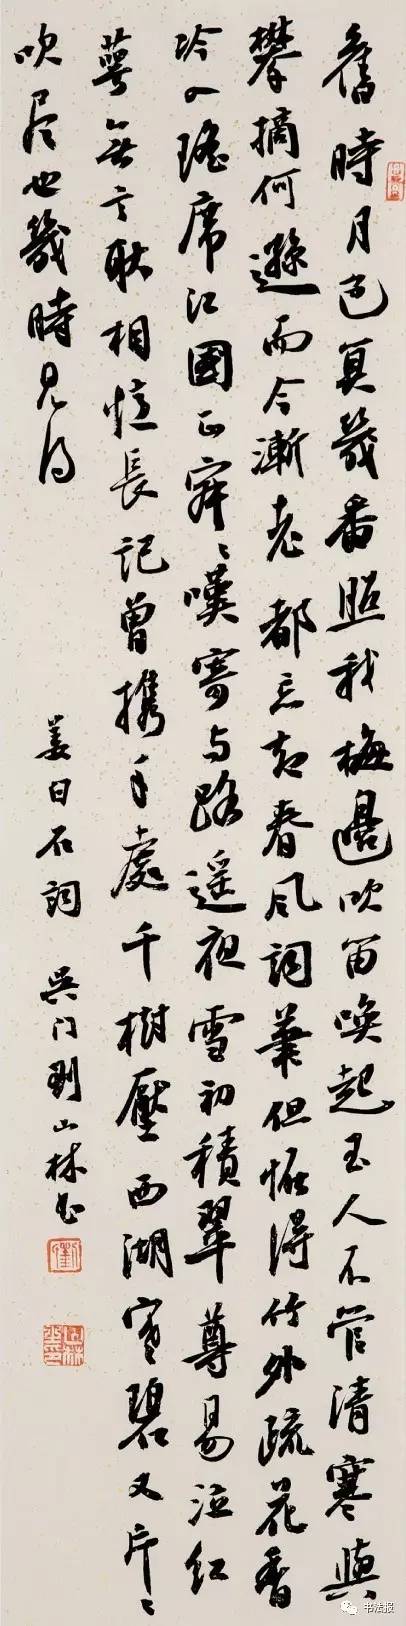 舊時月色算幾番照我梅邊吹笛喚起玉人不管清寒與
攀摘何遜而今漸老都忘却春風詞筆但怪得竹外疏花香
冷入瑤席江國正寂〻嘆寄与路遥夜雪初積翠尊易泣紅
萼無言耿相憶長記曾携手處千樹壓西湖寒碧又片〻
吹尽也幾時見得
姜白石詞 吳門劉山林書
书法报